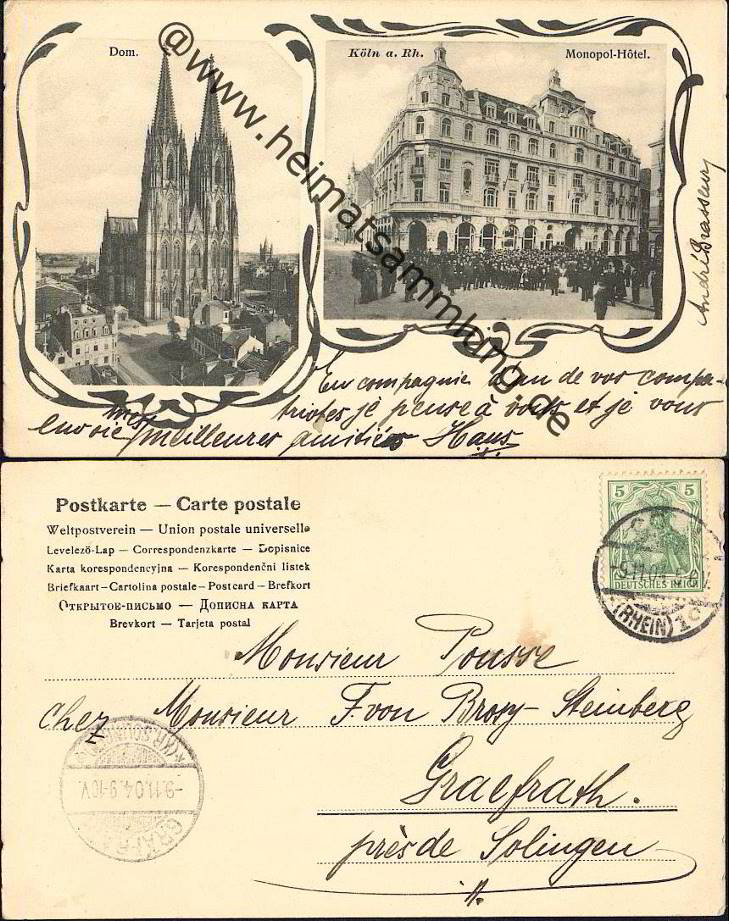 Dom.
Köln a. Rh. Monopol-Hôtel.
@www.heimatsammlung.de
André Brasseur
En compagnie d'un de vos compa-
triotes je pense à vous et je vous
envoie mes meilleures amitiés Hans
Postkarte — Carte postale
Weltpostverein — Union postale universelle
Levelező-Lap — Correspondenzkarte — Dopisnice
Karta korespondencyjna — Korespondenční lístek
Briefkaart — Cartolina postale — Postcard — Brefkort
Открытое-письмо — Дописна карта
Brevkort — Tarjeta postal
5 5
DEUTSCHES REICH
-9.11.04
(RHEIN) 1c
Monsieur Pousse
chez Monsieur F. von Brosy-Steinberg
Graefrath.
près de Solingen
-9.11.04.9-10V.
GRÄFRA